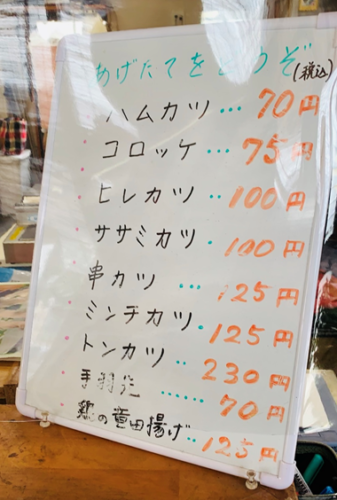 あげたてをどうぞ(税込)
ハムカツ…70円
コロッケ…75円
ヒレカツ‥100円
ササミカツ・100円
串カツ…125円
ミンチカツ・125円
トンカツ‥230円
手羽先……70円
鶏の竜田揚げ‥125円